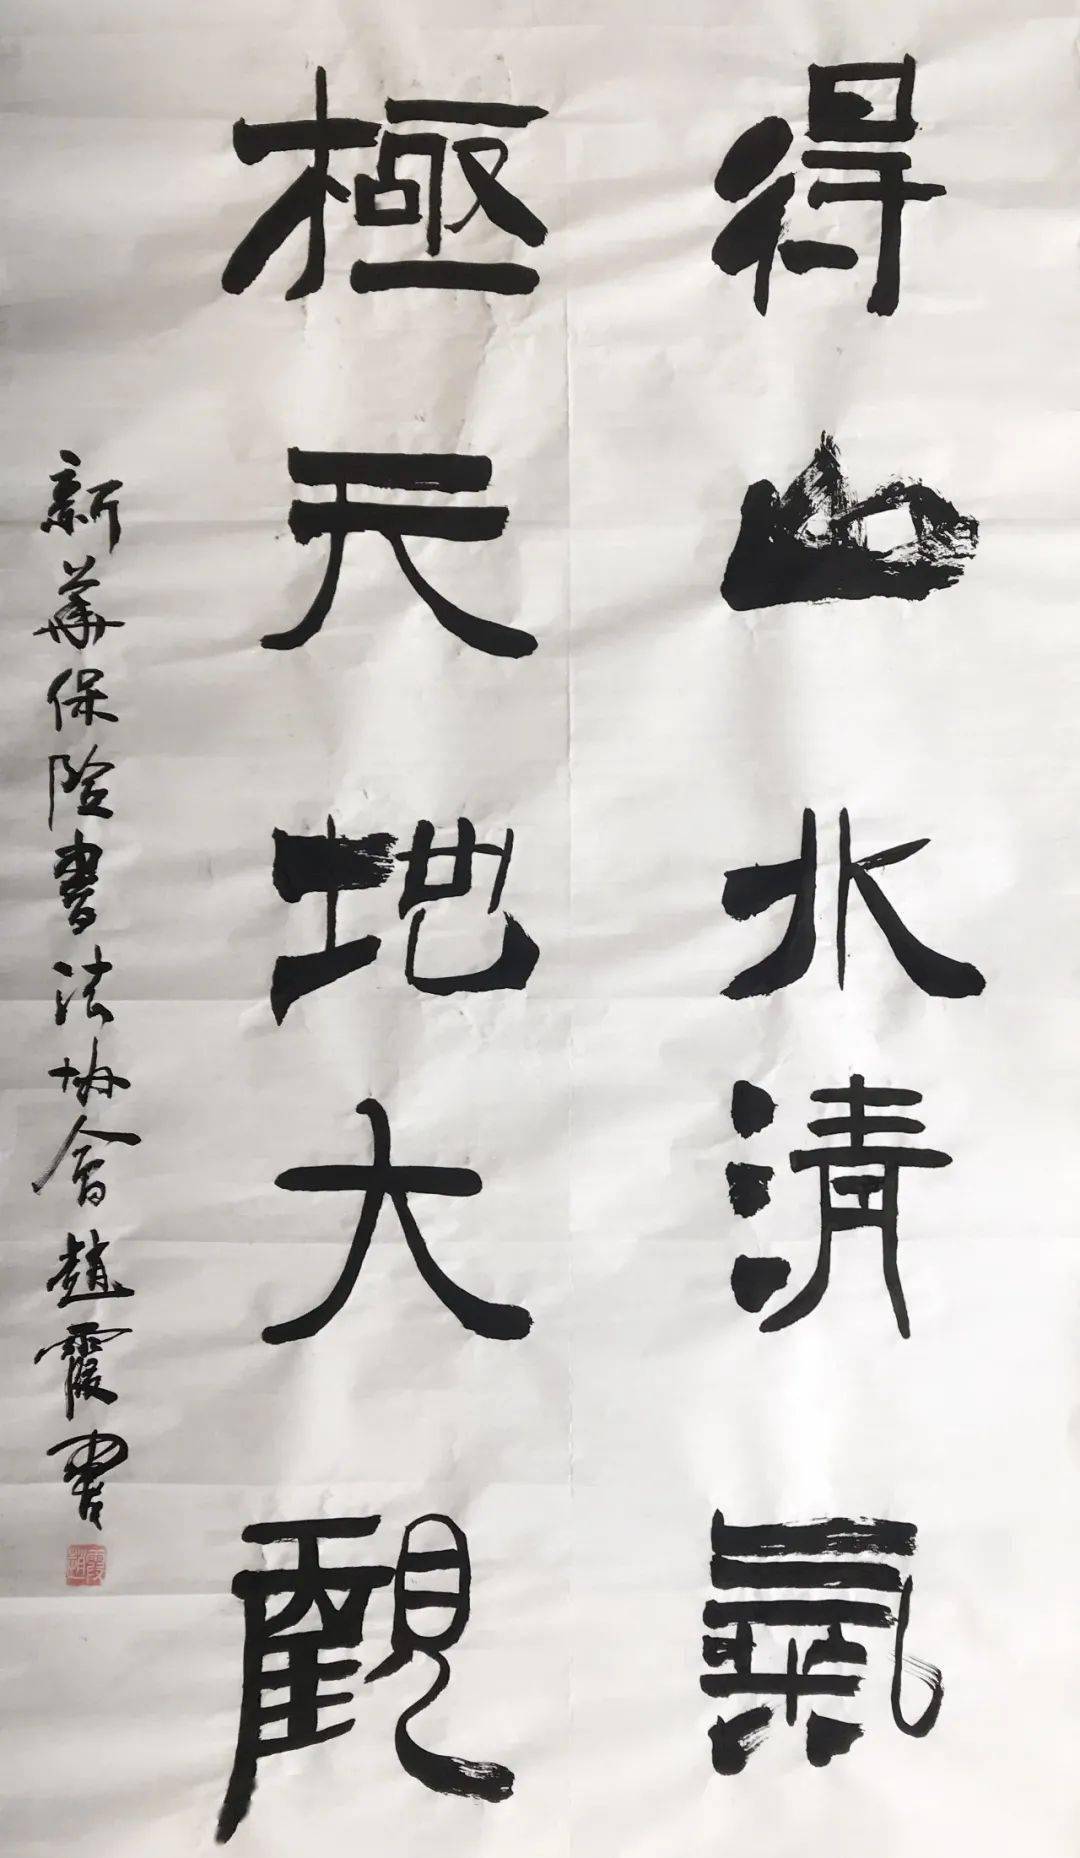 得山水清氣
極天地大觀
新華保险書法協會趙霞書
趙霞